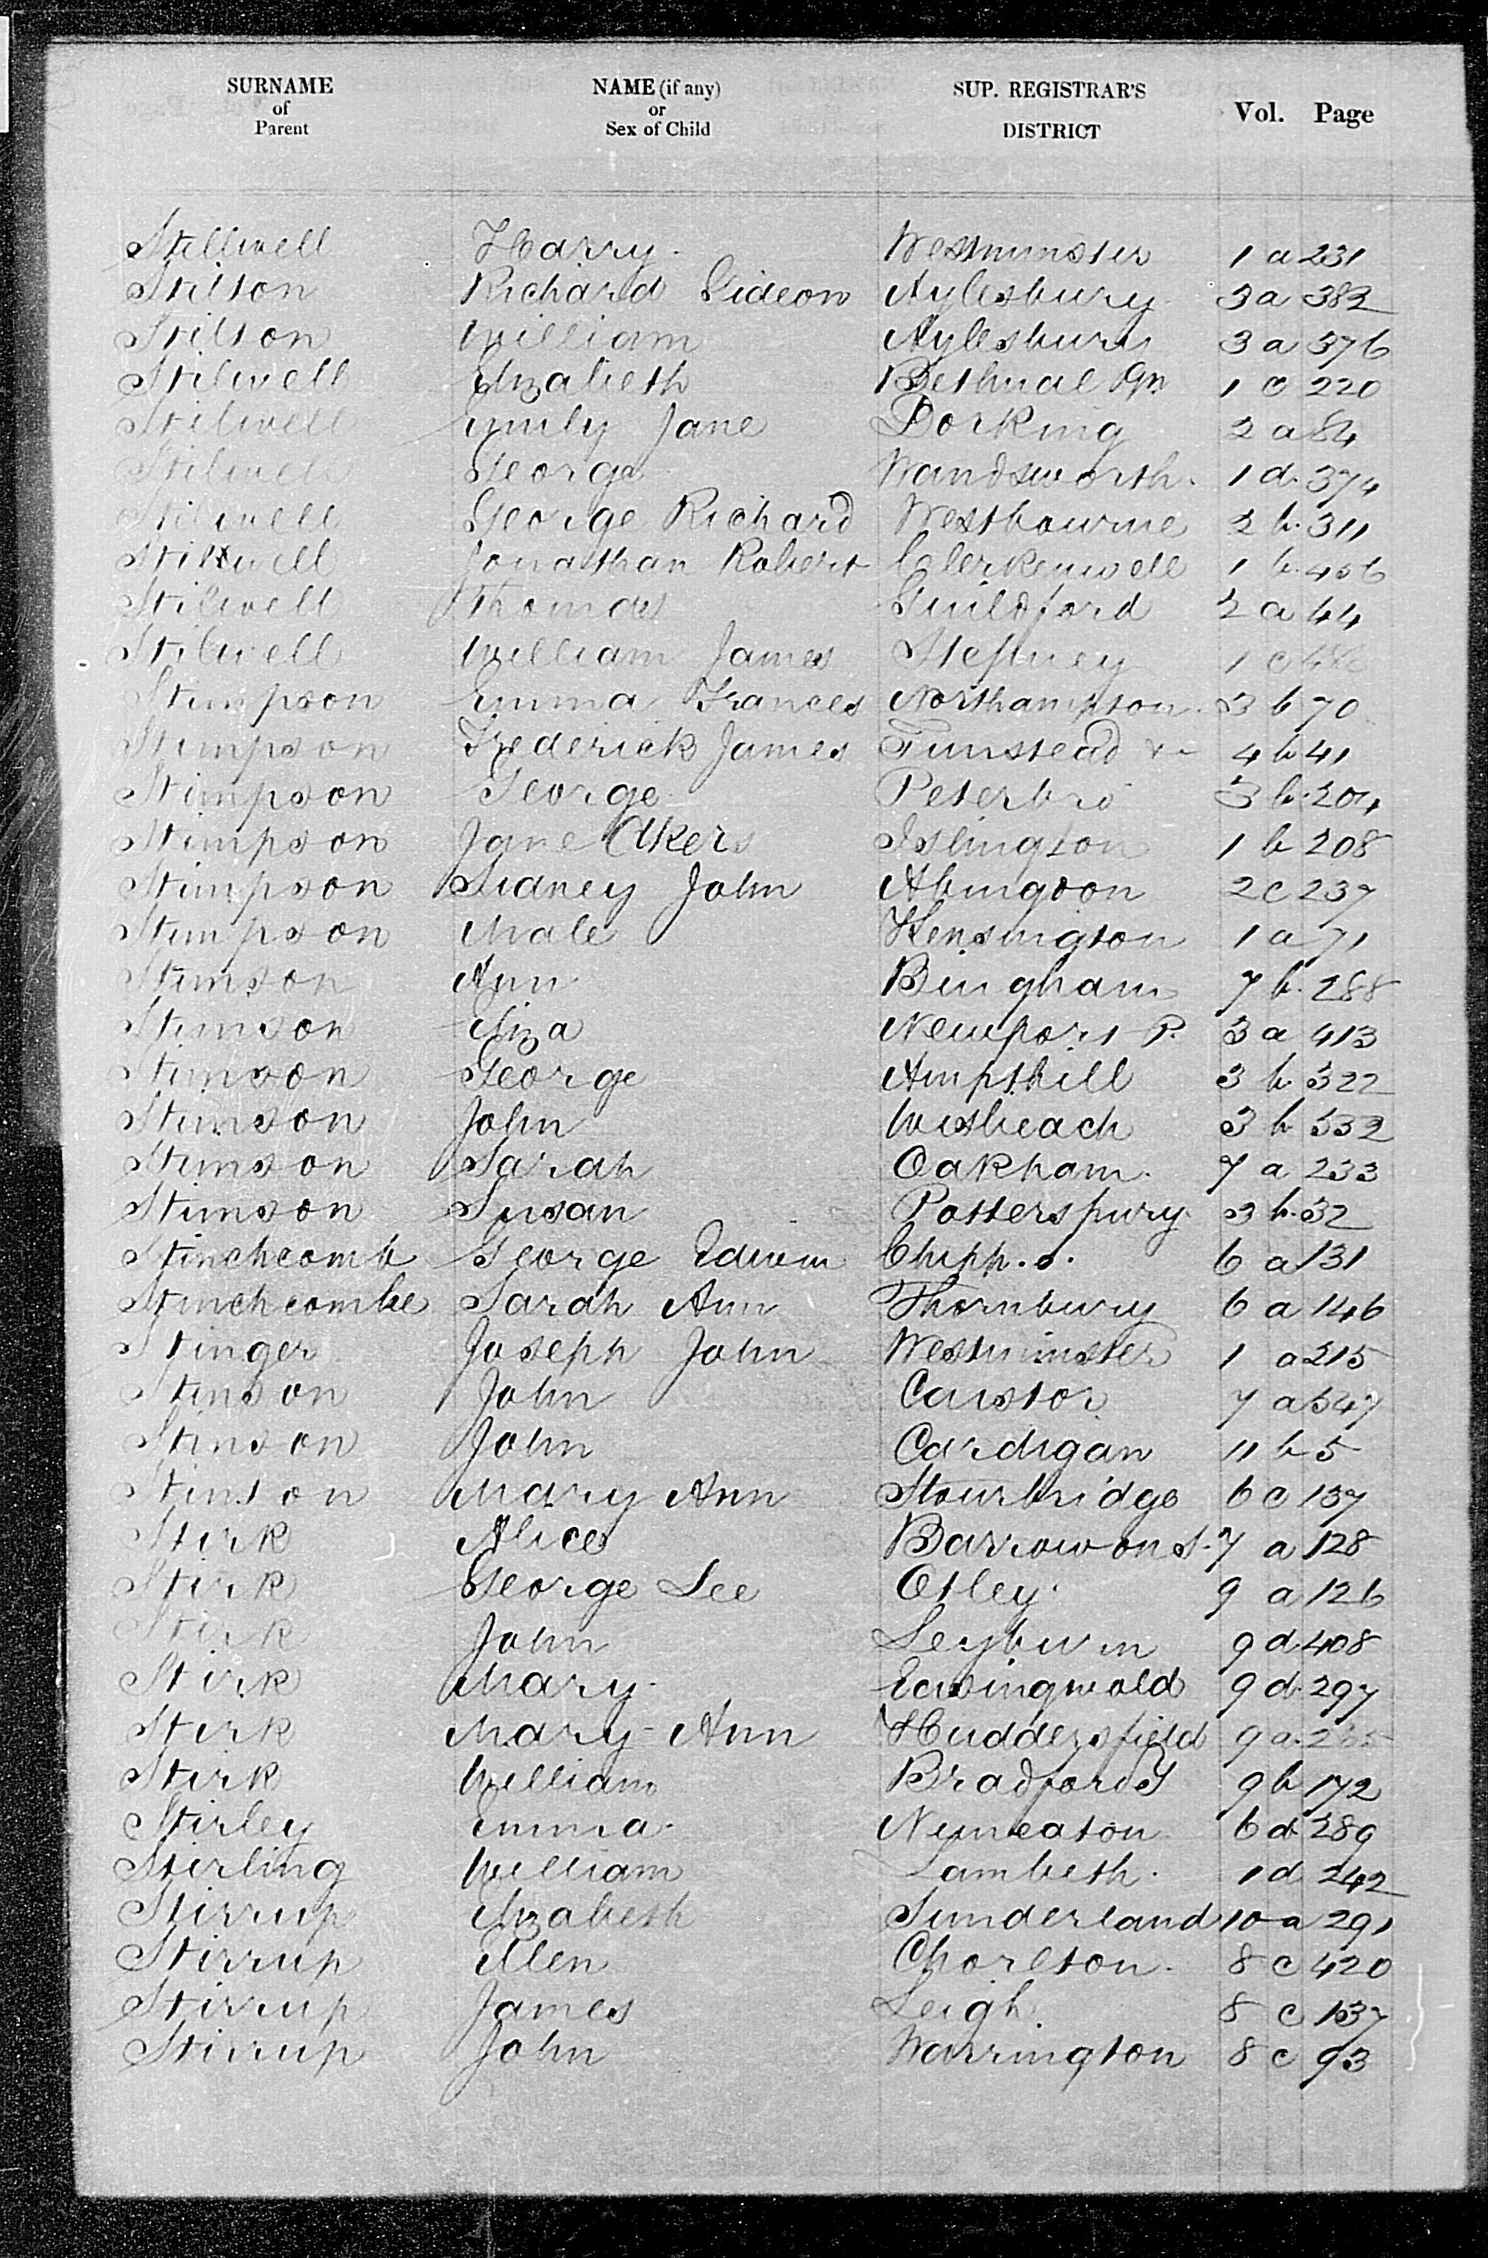 SURNAME of Parent NAME (if any) or Sex of Child SUP. REGISTRAR'S DISTRICT Vol. Page
Stillwell Harry Westminster 1 a 231
Stilson Richard Gideon Aylesbury 3 a 382
Stilson William Aylesbury 3 a 376
Stilwell Elizabeth Bethnal Gn 1 c 220
Stilwell Emily Jane Dorking 2 a 84
Stilwell George Wandsworth. 1 d. 374
Stilwell George Richard Westbourne 2 b. 311
Stilwell Jonathan Robert Clerkenwell 1 b. 456
Stilwell Thomas Guildford 2 a 44
Stilwell William James Stepney 1 c
Stimpson Emma Frances Northampton 3 b 70
Stimpson Frederick James Tunstead &c 4 b 41
Stimpson George Peterbro 3 b. 204
Stimpson Jane Akers Islington 1 b 208
Stimpson Sidney John Abingdon 2 c 237
Stimpson Male Kensington 1 a 71
Stimson Ann Bingham 7 b. 288
Stimson Eliza Newport P. 3 a 413
Stimson George Ampthill 3 b 322
Stimson John Wisbeach 3 b 532
Stimson Sarah Oakham. 7 a 233
Stimson Susan Potterspury 3 b. 32
Stinchcomb George Edwin Chipp. S. 6 a 131
Stinchcombe Sarah Ann Thornbury 6 a 146
Stinger Joseph John Westminster 1 a 215
Stinson John Caistor 7 a 547
Stinson John Cardigan 11 b 5
Stinson Mary Ann Stourbridge 6 c 137
Stirk Alice Barrow on S. 7 a 128
Stirk George Lee Otley. 9 a 126
Stirk John Leyburn 9 d 408
Stirk Mary Easingwold 9 d. 297
Stirk Mary Ann Huddersfield 9 a.
Stirk William Bradford Y 9 b 172
Stirley Emma Nuneaton 6 d 289
Stirling William Lambeth. 1 d 242
Stirrup Elizabeth Sunderland 10 a 291
Stirrup Ellen Chorlton. 8 c 420
Stirrup James Leigh 8 c 137
Stirrup John Warrington 8 c 93